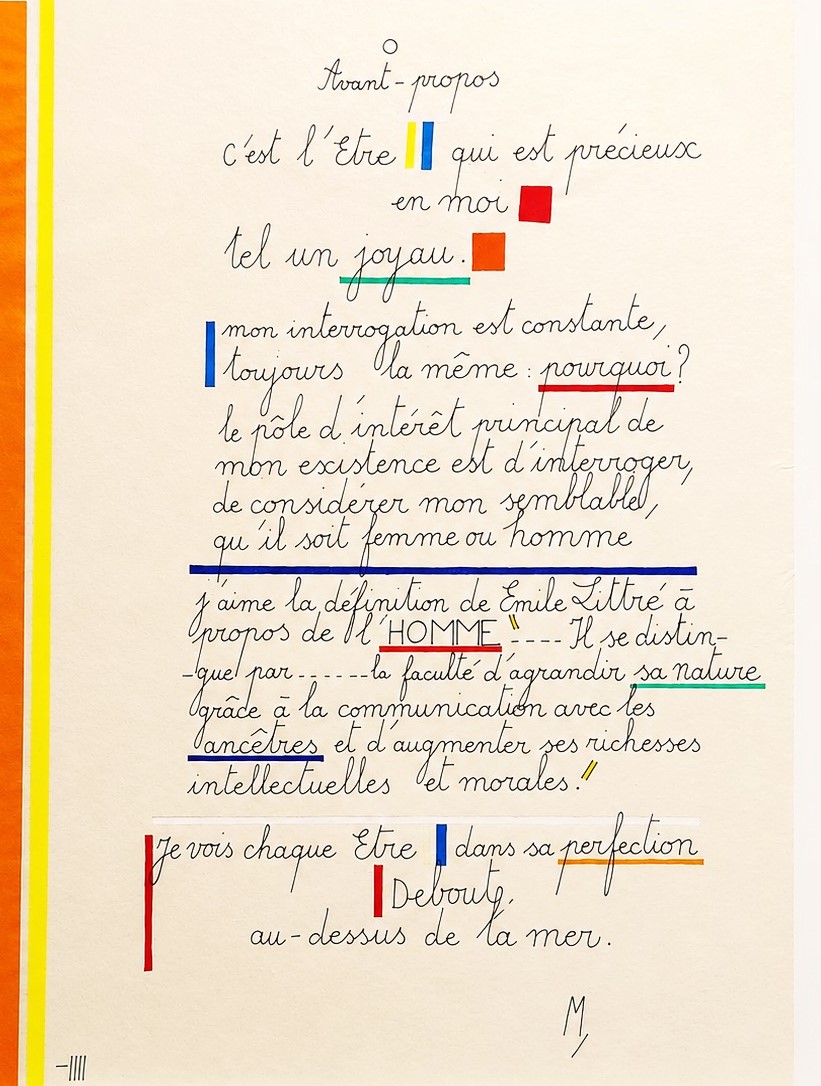 Avant-propos
c'est l'Etre qui est précieux
en moi
tel un joyau.
mon interrogation est constante,
toujours la même : pourquoi?
le pôle d'intérêt principal de
mon existence est d'interroger,
de considérer mon semblable,
qu'il soit femme ou homme
j'aime la définition de Emile Littré à
propos de l'HOMME "---- Il se distin-
-gue par ------la faculté d'agrandir sa nature
grâce à la communication avec les
ancêtres et d'augmenter ses richesses
intellectuelles et morales."
Je vois chaque Etre dans sa perfection
Debout,
au-dessus de la mer.
M,